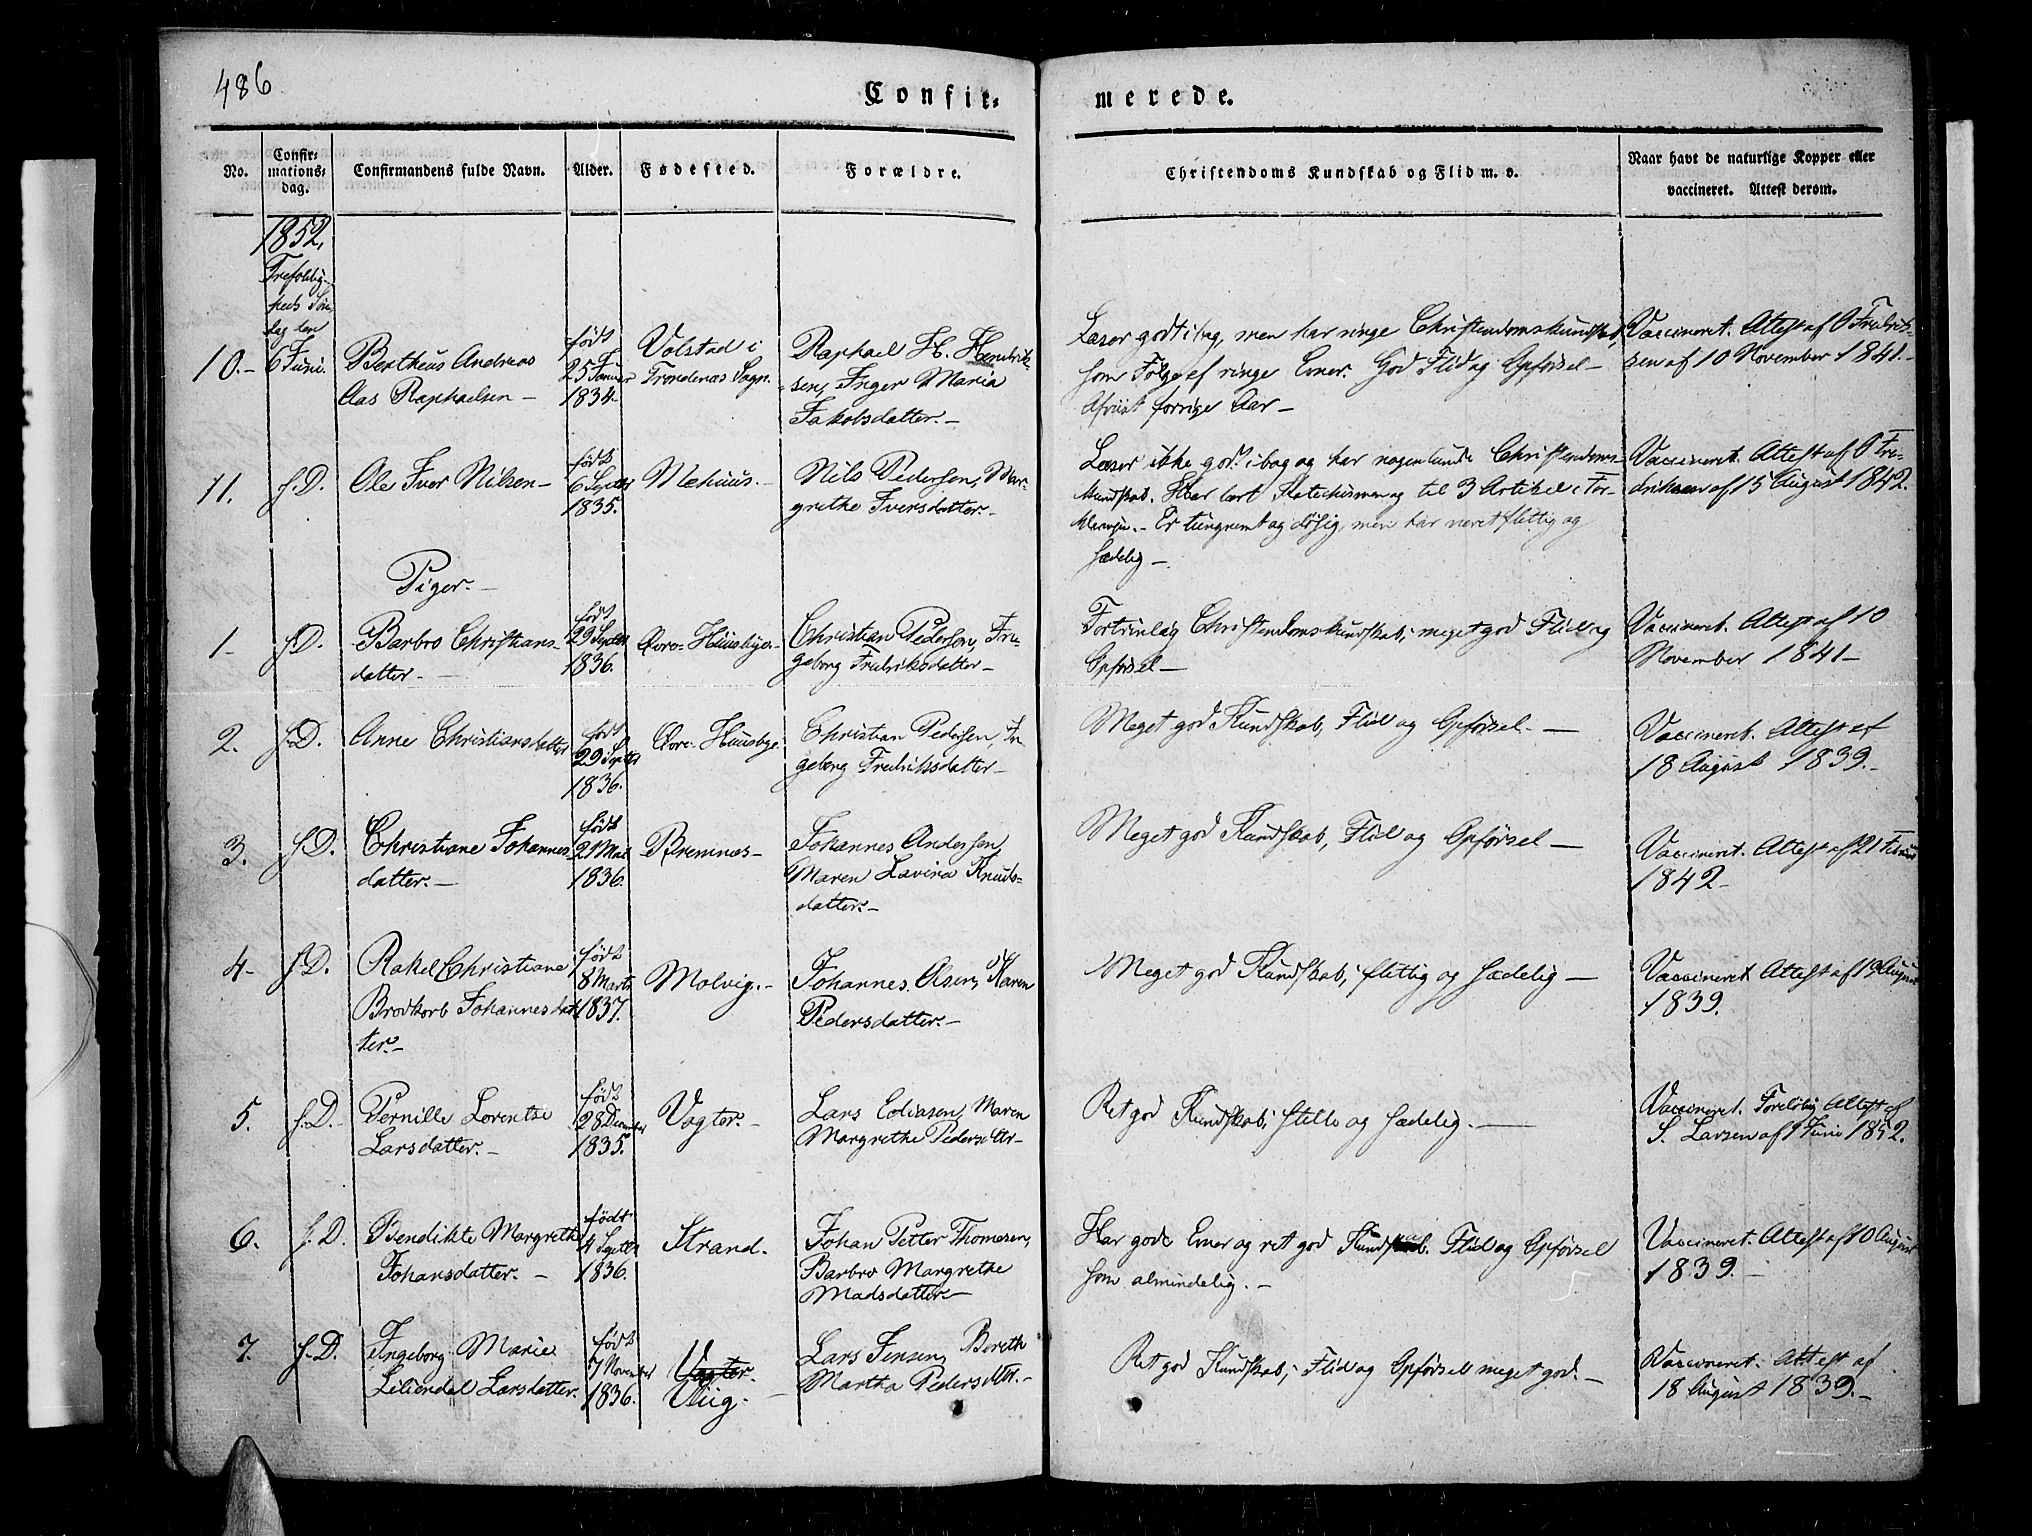 486
Confir-
merede.
No.
Confir-
mations-
dag.
Confirmandens fulde Navn.
Alder.
Fødested.
Forældre.
Christendoms Kundskab og Flid m. v.
Naar havt de naturlige Kopper eller
vaccineret. Attest derom.
1852,
Trefoldig-
heds Søn
dag den
10.- 6 Juni.
Bertheus Andreas
Aas Raphaelsen -
født
25 Januar
1834
Volstad i
Trondenæs Sogn.
Raphael H. Henrik-
sen, Inger Maria
Jakobsdatter. -
Læser godt i bog, men har ringe Christendomskundskab,
som Følge af ringe Evner. God Flid og Opførsel -
Afviist forrige Aar -
Vaccineret. Attest af O Fredrik-
sen af 10 November 1841. -
11. s. D.
Ole Iver Nilsen -
født
6 Septbr
1835.
Mæhuus. -
Nils Pedersen, Mar-
grethe Iversdatter. -
Læser ikke godt i bog og har nogenlunde Christendoms-
kundskab. Har lært Katechismen og til 3 Artikel i For-
klaringen. - Er tungnemt og døsig, men har været flittig og
sædelig -
Vaccineret. Attest af O Fre-
driksen af 15 August 1842.
Piger. -
1- s. D.
Barbro Christians-
datter. -
født
29 Septbr
1836.
Øvre-Huusbye. -
Christian Pedersen, In-
geborg Fredriksdatter -
Fortrinlig Christendomskundskab; meget god Flid og
Opførsel -
Vaccineret. Attest af 10
November 1841 -
2. s. D.
Anne Christiansdatter
født
29 Septbr
1836.
Øvre-Huusbye.
Christian Pedersen, In-
geborg Fredriksdatter -
Meget god Kundskab, Flid og Opførsel. -
Vaccineret. Attest af
18 August 1839. -
3. s. D.
Christiane Johannes-
datter. -
født
21 Mai
1836.
Bremnæs -
Johannes Andersen,
Maren Lavina Knuds-
datter. -
Meget god Kundskab, Flid og Opførsel -
Vaccineret. Attest af 21
1842 -
4- s. D.
Rakel Christiane
Brodkorb Johannesdat
ter. -
født
8 Marts
1837.
Molvig. -
Johannes Olsen, Karen
Pedersdatter. -
Meget god Kundskab; flittig og sædelig -
Vaccineret. Attest af 19 August
1839.
5. s. D. -
Pernille Lorentse
Larsdatter. -
født
28 December
1835.
Vagter. -
Lars Ediasen, Maren
Margrethe Pedersdttr -
Ret god Kundskab; stille og sædelig. -
Vaccineret. Foreløbig Attest af
S. Larsen af 1 Juni 1852.
6. s. D.
Bendikte Margrethe
Johansdatter. -
født
4 Septbr
1836.
Strand.
Johan Petter Thomesen,
Barbro Margrethe
Madsdatter -
Har gode Evner og ret god Kundskab. Flid og Opførsel
som almindelig. -
Vaccineret. Attest af 10 August
1839. -
7. s. D.
Ingeborg Marie
Liliendal Larsdatter.
født
7 November
1836.
Vagter.
Viig. -
Lars Jensen, Bereth
Martha Pedersdttr. -
Ret god Kundskab; Flid og Opførsel meget god. -
Vaccineret. Attest af
18 August 1839. -